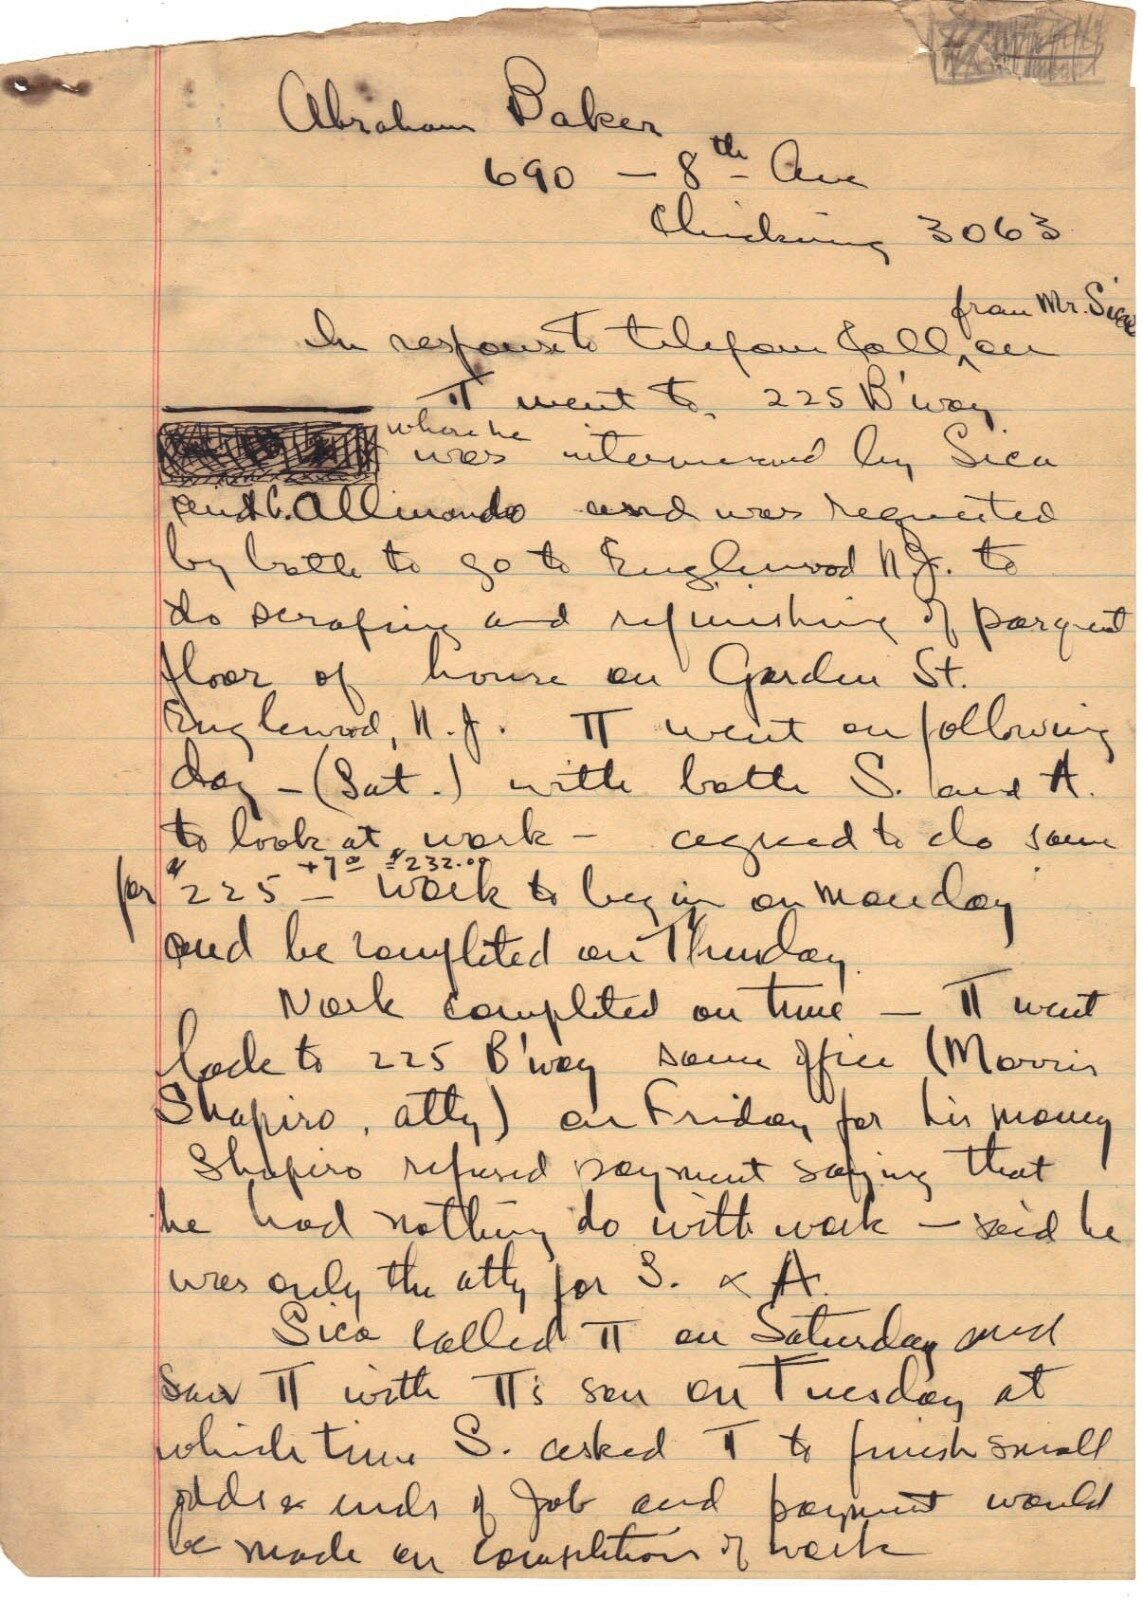 Abraham Baker
690 — 8th Ave
Chickering 3063
from Mr. Sica
In response to telefone call, on
π went to 225 B'way
where he
was interviewed by Sica
and C. Allimondo and was requested
by both to go to Englewood N.J. to
do scraping and refinishing of parquet
floor of house on Garden St.
Englewood, N.J. π went on following
day — (Sat.) with both S. and A.
to look at work — agreed to do same
+7 00 = $232.00
for $225 — work to begin on Monday
and be completed on Thursday.
Work completed on time — π went
back to 225 B'way same office (Morris
Shapiro, atty) on Friday for his money
Shapiro refused payment saying that
he had nothing do with work — said he
was only the atty for S. & A.
Sica called π on Saturday and
saw π with π's son on Tuesday at
which time S. asked π to finish small
odds & ends of job and payment would
be made on completion of work